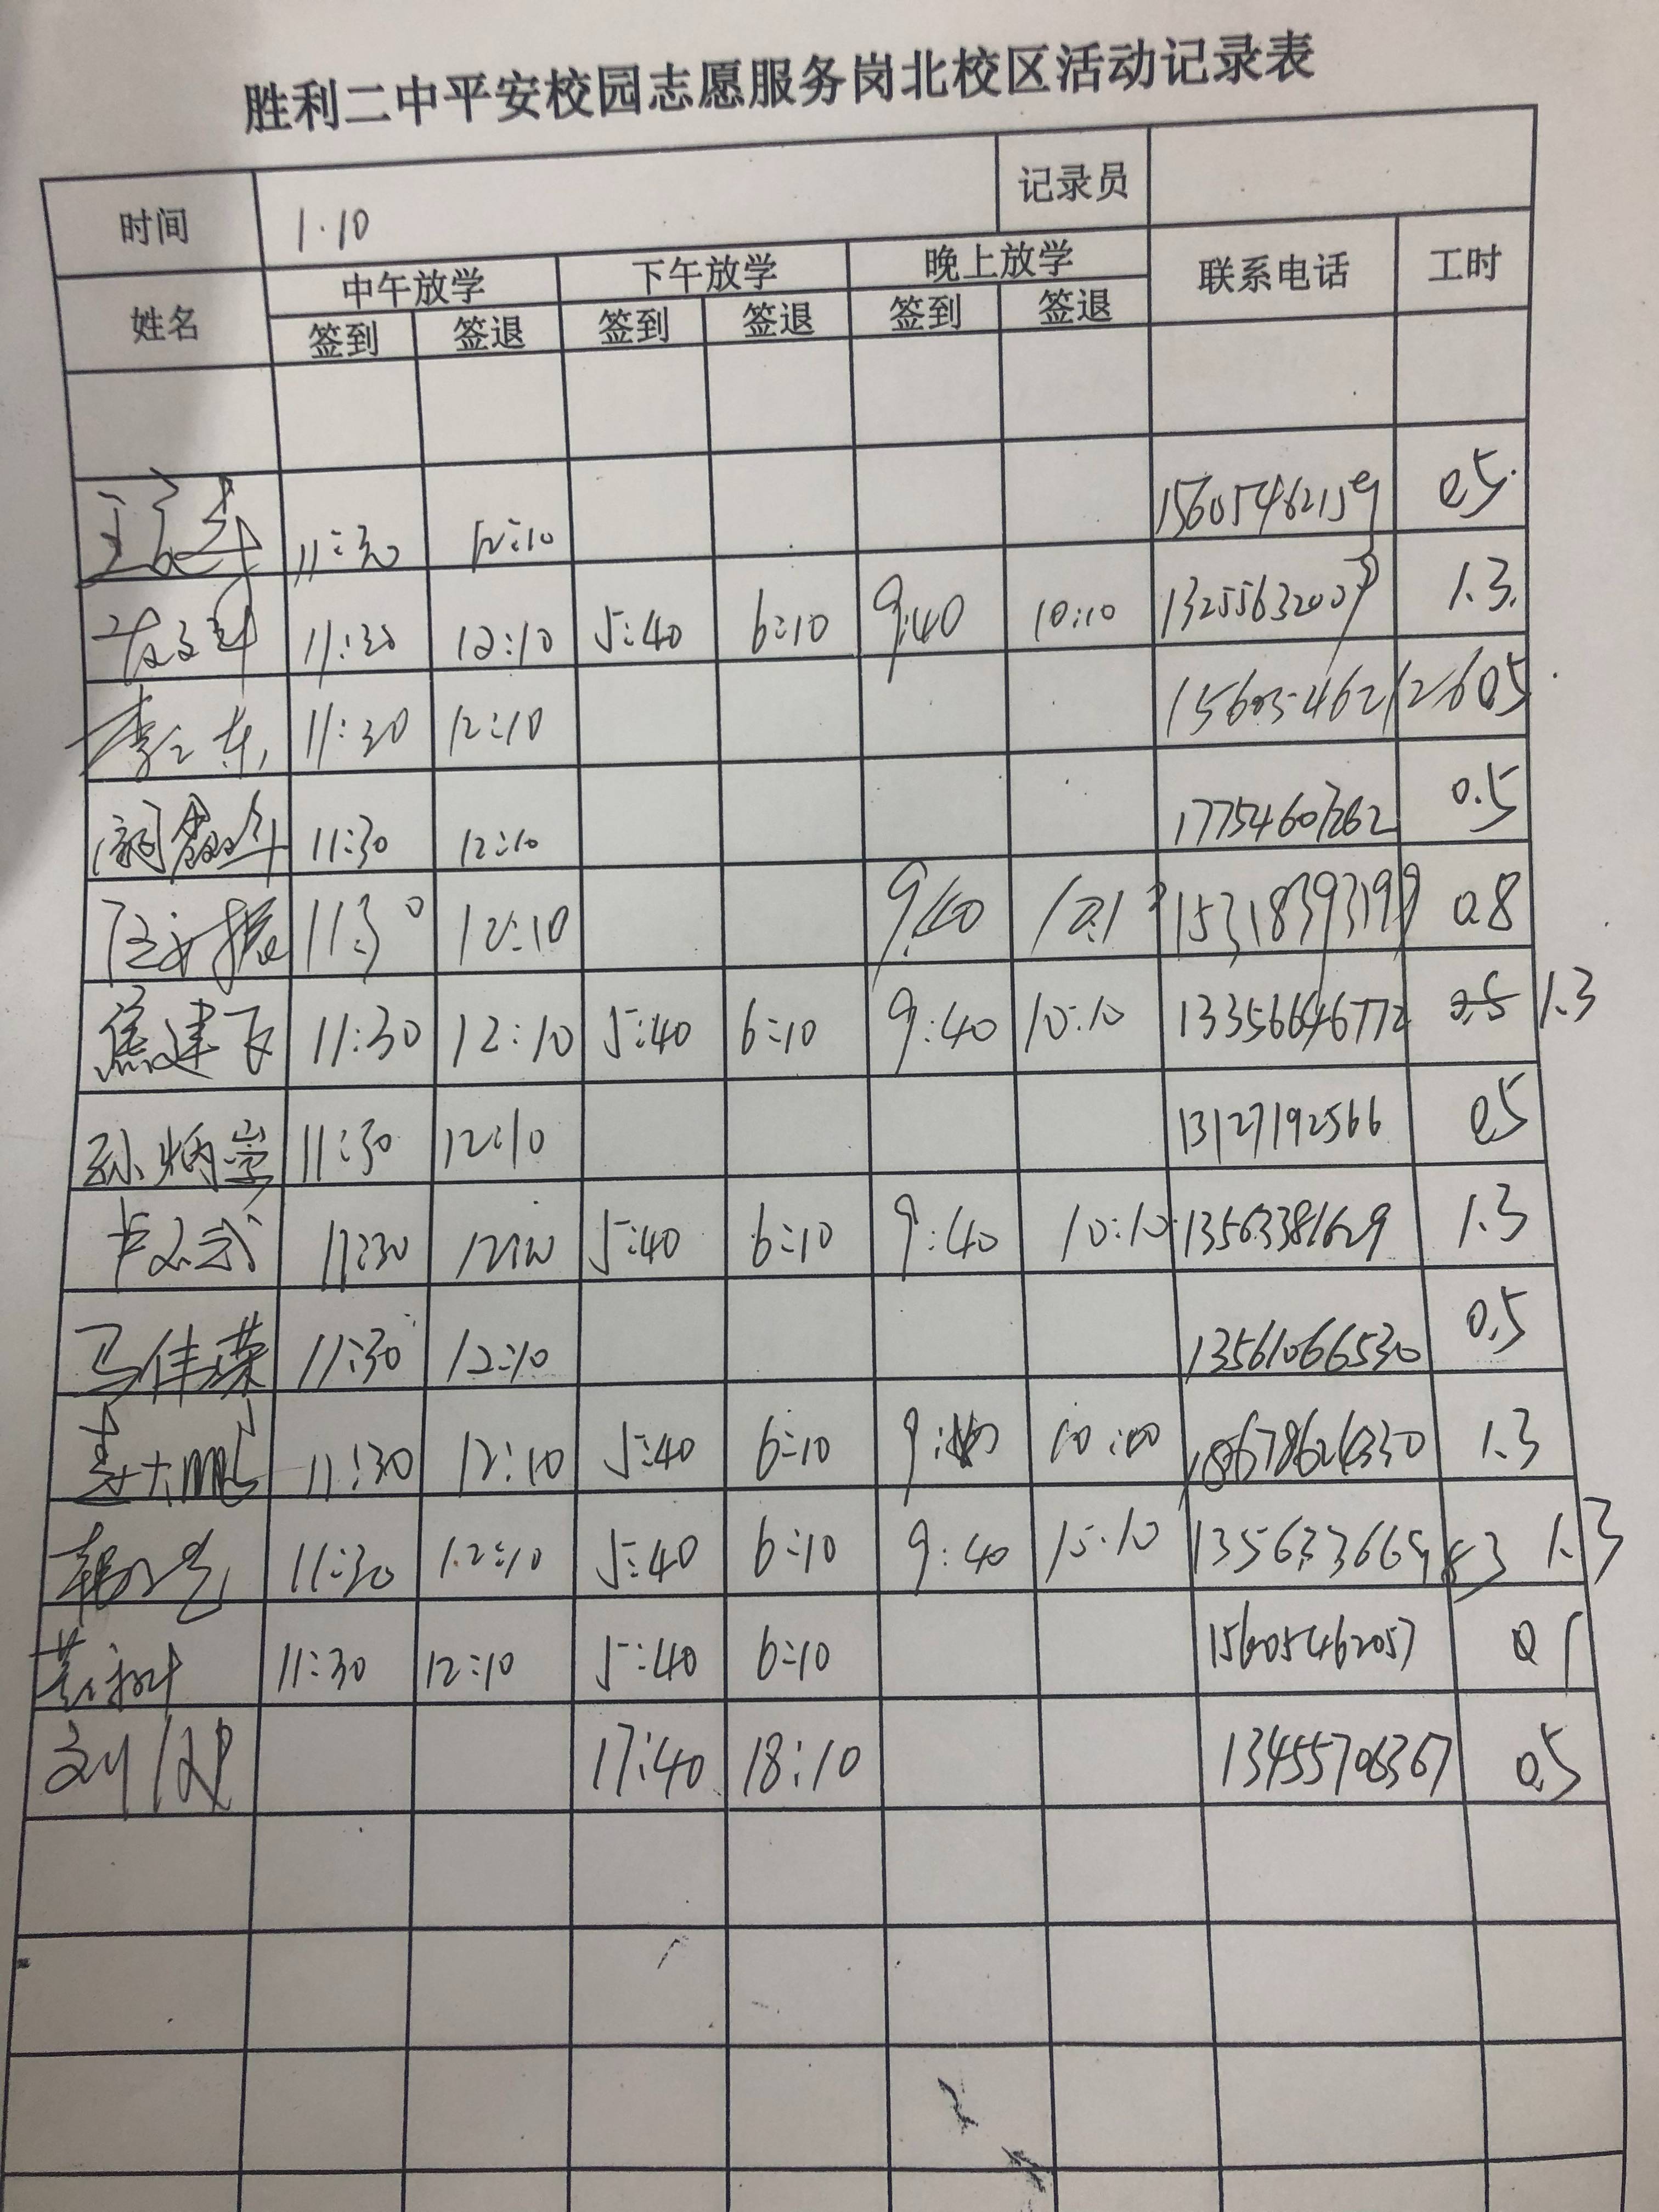 胜利二中平安校园志愿服务岗北校区活动记录表
时间 1.10 记录员
姓名 中午放学 下午放学 晚上放学 联系电话 工时
签到 签退 签到 签退 签到 签退
11:30 12:10 15605462159 0.5
11:30 12:10 5:40 6:10 9:40 10:10 1.3
11:30 12:10 15605462126 0.5
11:30 12:10 17754607262 0.5
11:30 12:10 9:40 15318393199 0.8
焦建飞 11:30 12:10 5:40 6:10 9:40 10:10 13356646772 1.3
孙炳学 11:30 12:10 13127192566 0.5
11:30 12:10 5:40 6:10 9:40 10:10 13563381629 1.3
马佳荣 11:30 12:10 13561066530 0.5
11:30 12:10 5:40 6:10 1.3
11:30 12:10 5:40 6:10 9:40 1.3
11:30 12:10 5:40 6:10 15605462057
17:40 18:10 13455706367 0.5